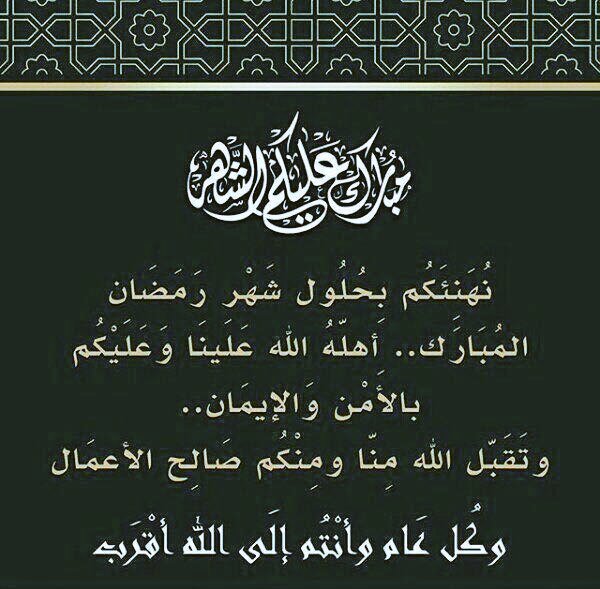 مُبَارَك عَلَيكُم الشَّهر
نُهَنئَكُم بِحُلُول شَهْر رَمَضَان
المُبَارَك.. أهلّهُ الله عَلَينَا وَعَلَيْكُم
بالأَمْن وَالإيمَان..
وتَقَبّل الله مِنّا ومِنْكُم صَالِح الأعمَال
وكُل عَام وأنْتُم إلَى الله أقْرَب